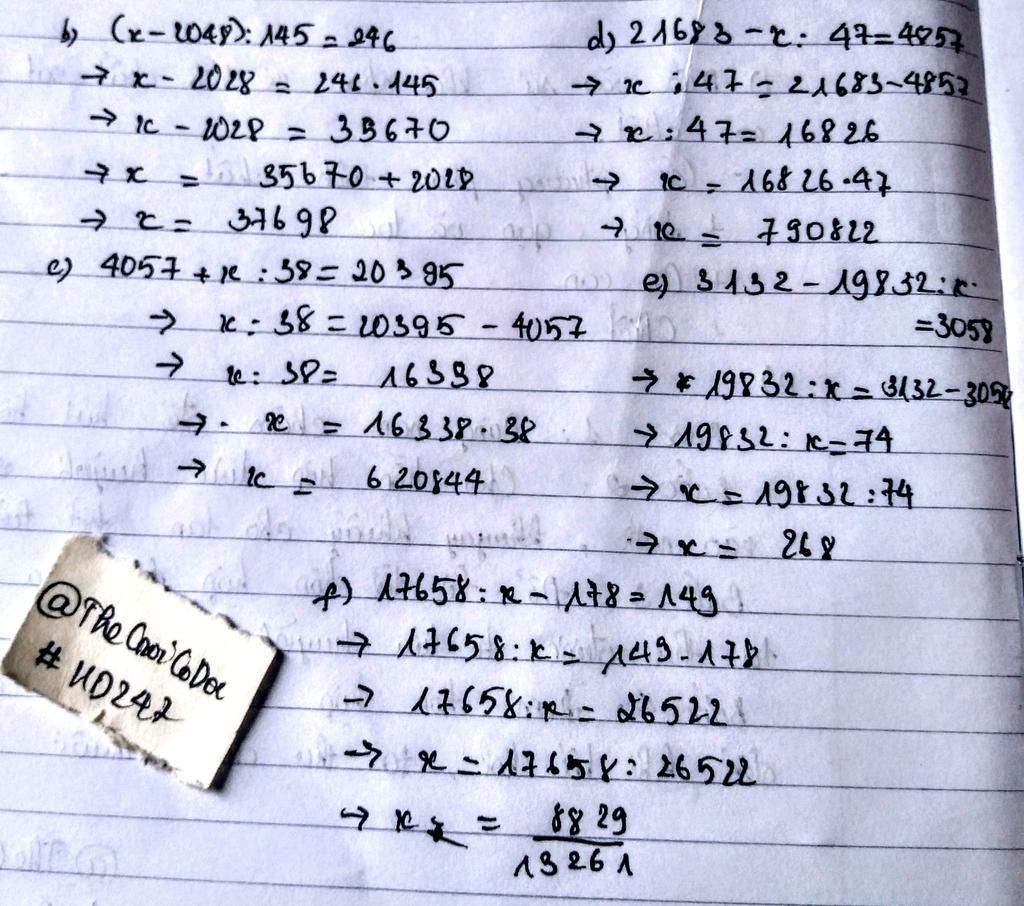 b) (x - 2048) : 145 = 246
→ x - 2028 = 246 . 145
→ x - 2028 = 35670
→ x = 35670 + 2028
→ x = 37698
c) 4057 + x : 38 = 20395
→ x : 38 = 20395 - 4057
→ x : 38 = 16338
→ . x = 16338 . 38
→ x = 620844
d) 21683 - x : 47 = 4857
→ x : 47 = 21683 - 4857
→ x : 47 = 16826
→ x = 16826 . 47
→ x = 790822
e) 3132 - 19832 : x
= 3058
→ 19832 : x = 3132 - 3058
→ 19832 : x = 74
→ x = 19832 : 74
→ x = 268
f) 17658 : x - 178 = 149
→ 17658 : x = 149 . 178
→ 17658 : x = 26522
→ x = 17658 : 26522
→ x = 8829
13261
@TheCoorCoDoc
# HD247